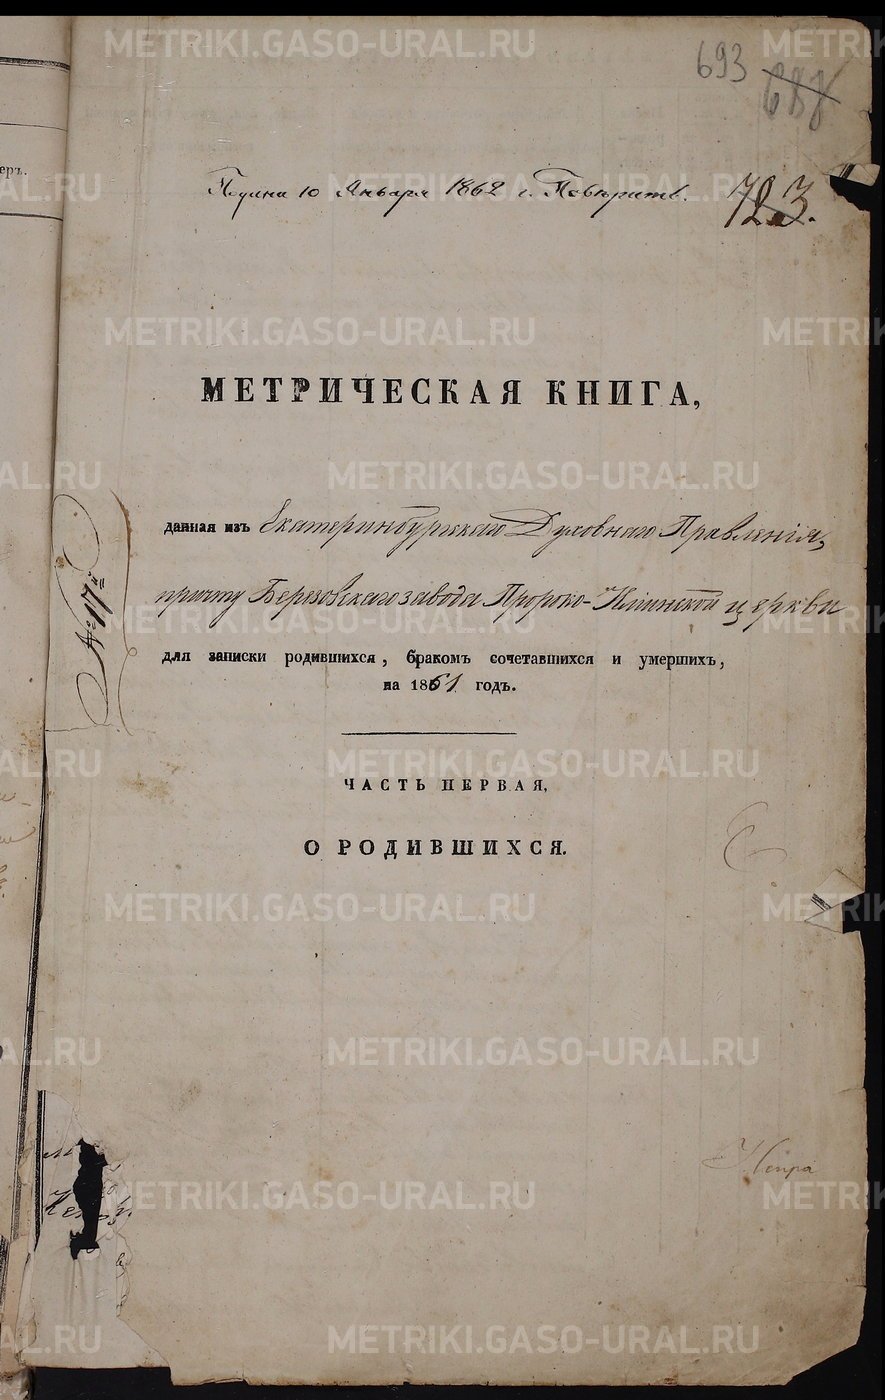 693
688
Подана 10 Января 1862 г. Повѣрить.
723.
МЕТРИЧЕСКАЯ КНИГА,
данная изъ Екатеринбургскаго Духовнаго Правленія,
причту Березовскаго завода Пророко-Иліинской церкви
№ 17й
для записки родившихся, бракомъ сочетавшихся и умершихъ,
на 1861 годъ.
ЧАСТЬ ПЕРВАЯ,
О РОДИВШИХСЯ.
METRIKI.GASO-URAL.RU